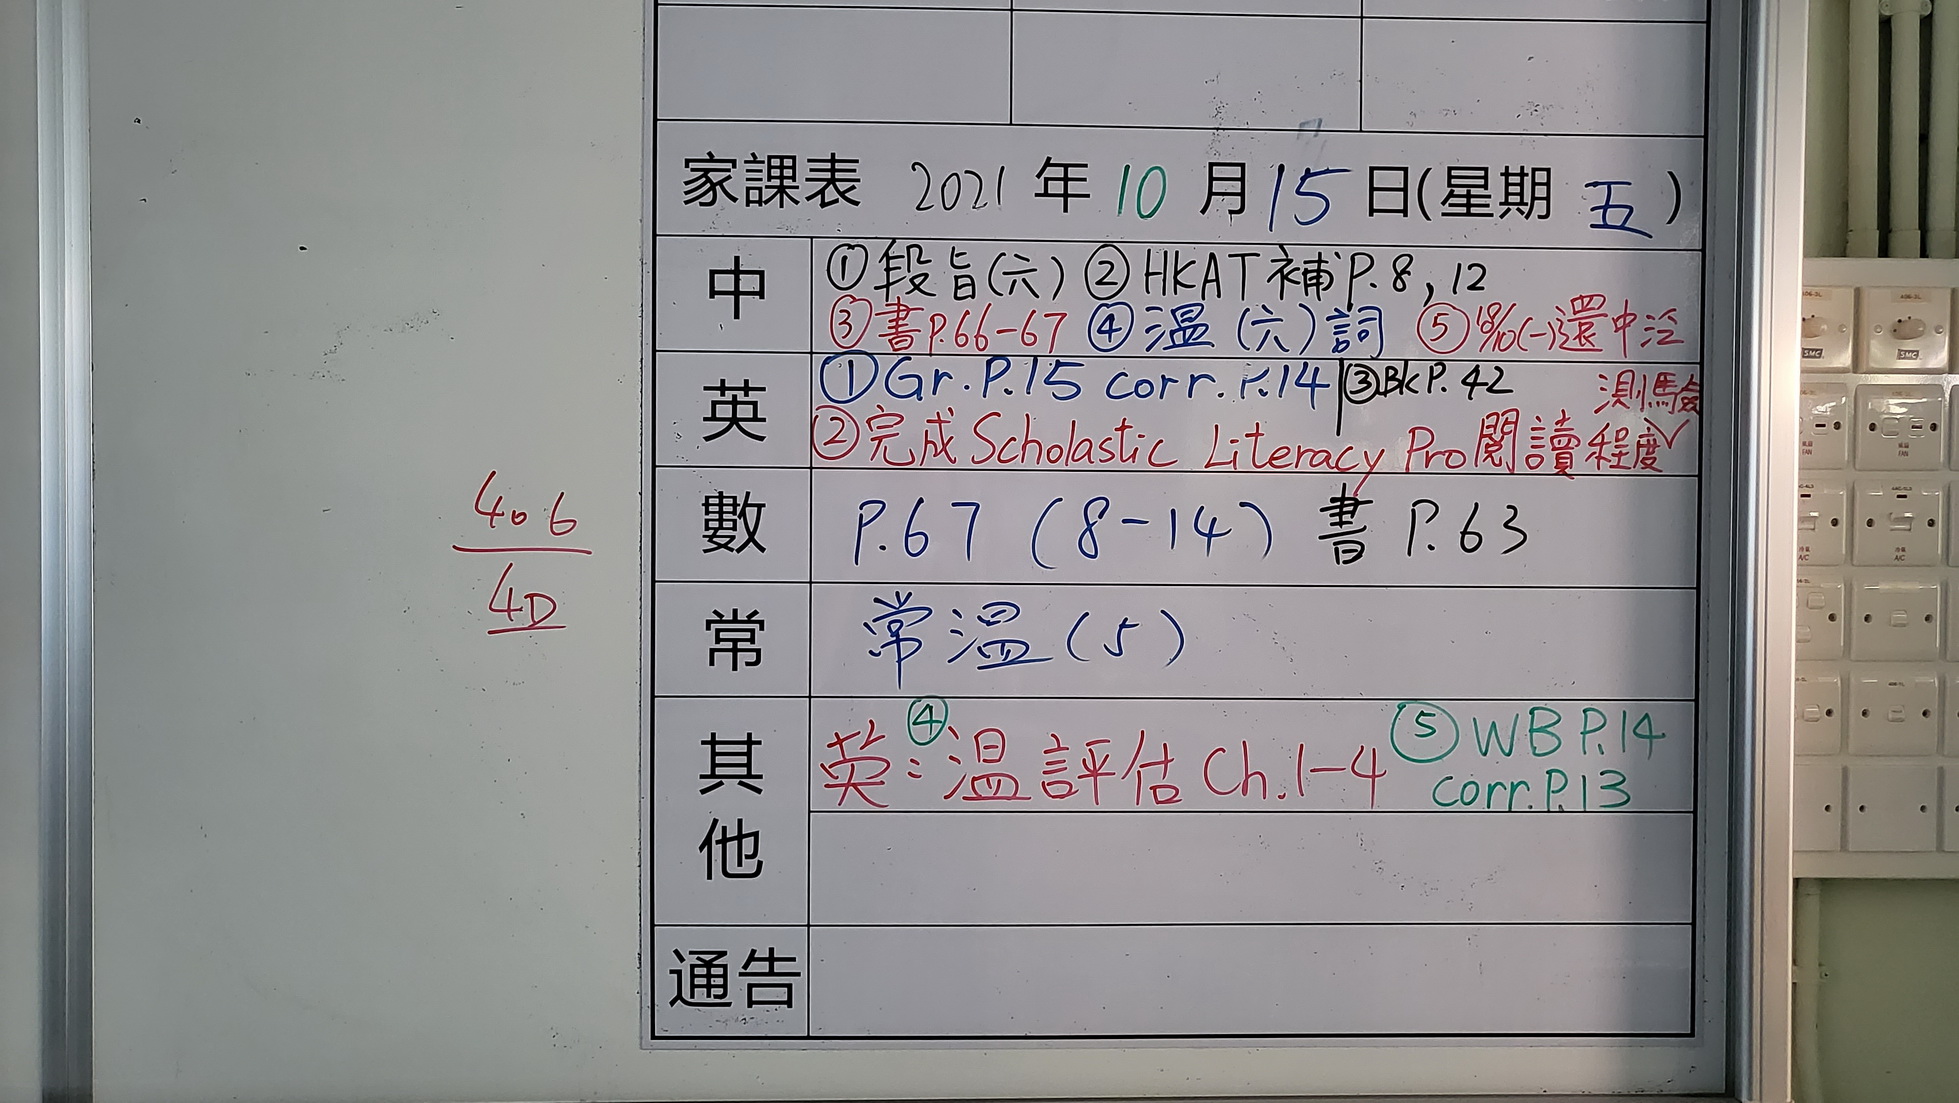 家課表 2021 年 10 月 15 日(星期 五)
中
①段旨(六) ②HKAT補P.8, 12
③書P.66-67 ④溫(六)詞 ⑤18/10(一)還中泛
英
①Gr.P.15 corr.P.14 ③BkP.42 測驗
②完成Scholastic Literacy Pro閱讀程度
數
P.67 (8-14) 書 P.63
常
常溫(5)
其他
英:④溫評估Ch.1-4 ⑤WB P.14
corr.P.13
通告
406
4D
FAN
A/C
SMC
SMC
FAN
A/C